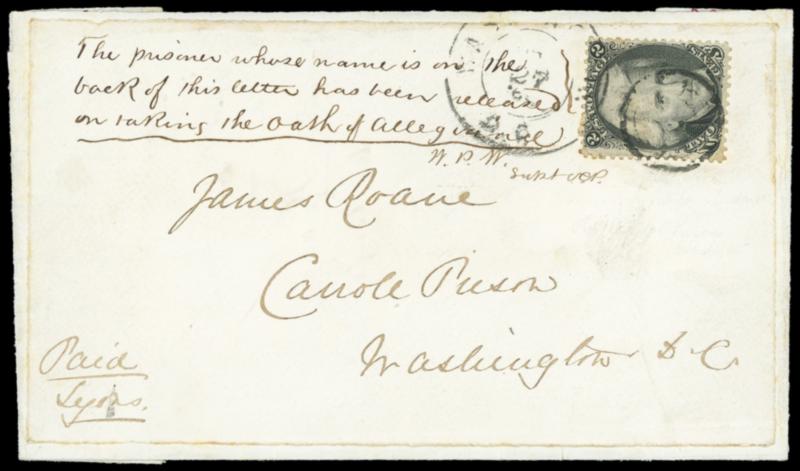 The prisoner whose name is on the
back of this letter has been released
on taking the Oath of Allegiance
W. P. W.
Supt O.C.P.
James Roane
Carrole Prison
Washington D. C.
Paid
Lyons.